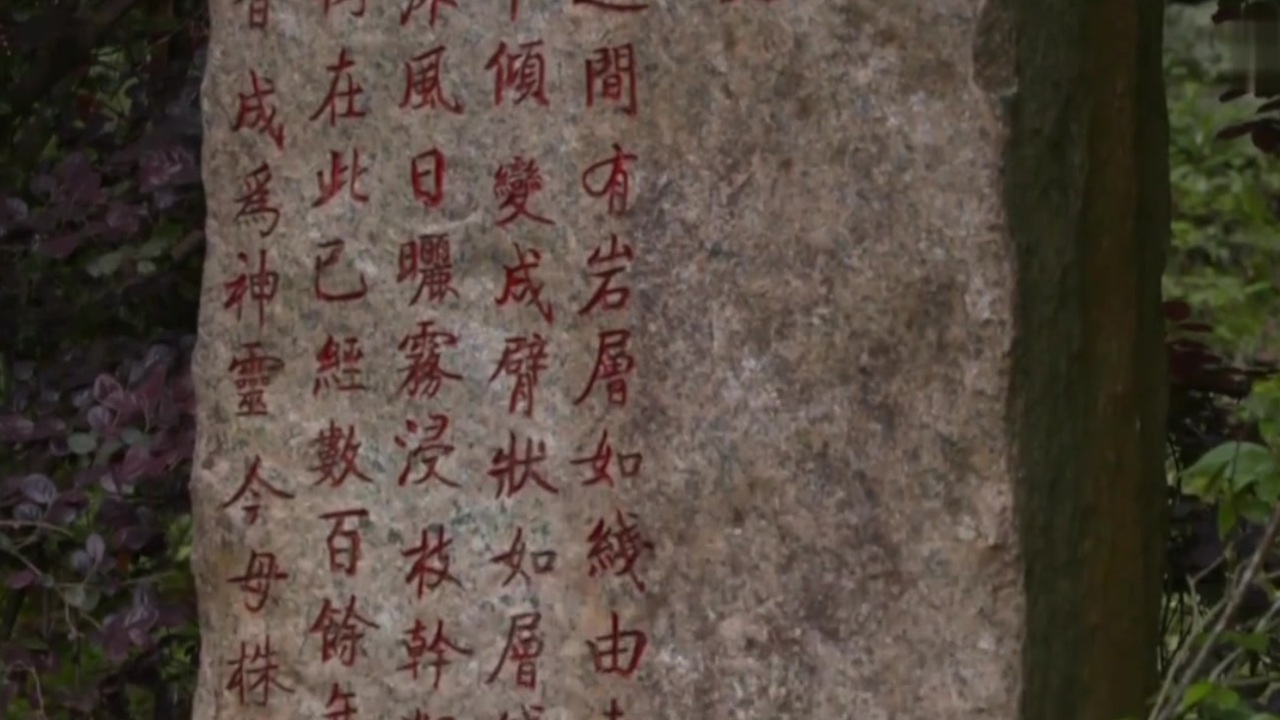 間有岩層如綫由
傾變成臂狀如層
風日曬霧浸枝幹
在此已經數百餘年
成爲神靈今母株